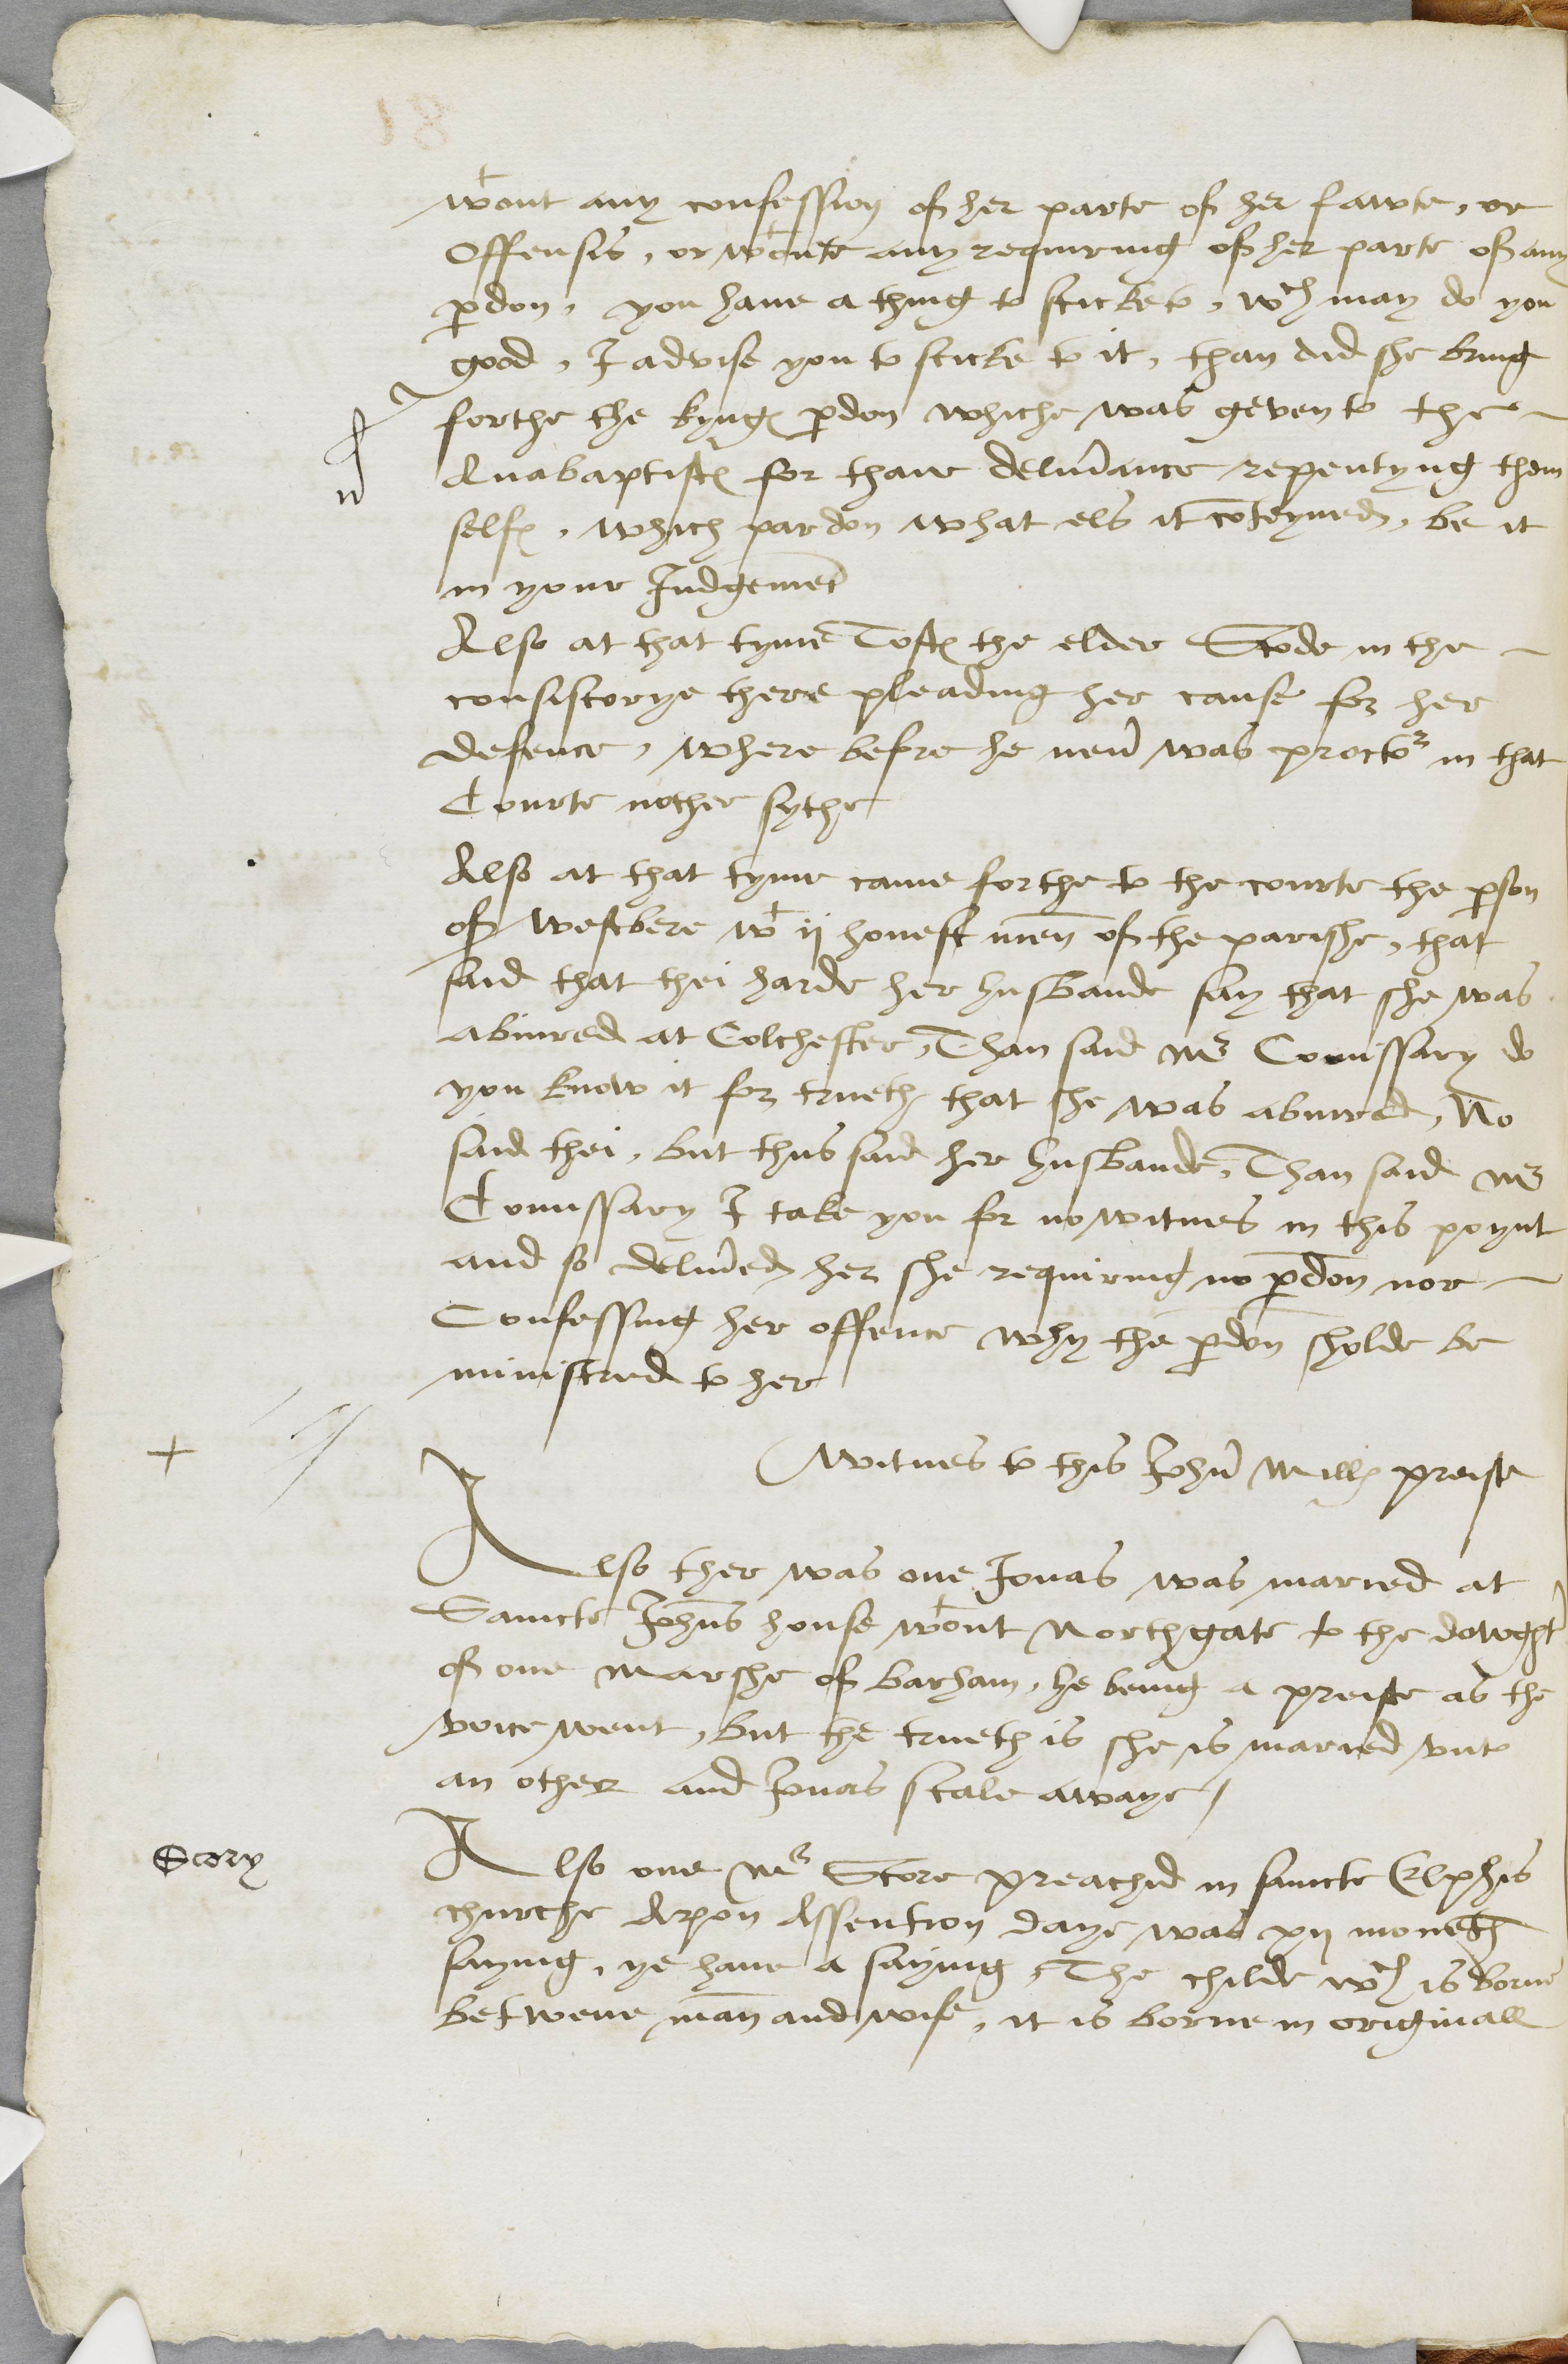 wtout any confession of her parte of her fawte, or
Offensis, or wtoute any requiring of her parte of any
pdon, you have a thing to sticke to, wch may do you
good, I advise you to sticke to it, than did she bring
forthe the kynges pdon whiche was geven to the
Anabaptistes for thaire deliuance repentyng them
selfes, which pardon what els it coteyned, be it
in your Judgement
Also at that tyme Toftes the elder Stode in the
consistorye there pleading her cause for her
defence, where before he neu was proctor in that
Courte nother sythe
Also at that tyme came forthe to the courte the pson
of westbere wt ij honest men of the parishe, that
said that thei harde her husbande say that she was
abiured at Colchester, Than said Mr Comissary do
you know it for trueth that she was abiured, No
said thei, but thus said her husbande, Than said Mr
Comissary I take you for no witnes in this poynt
and so deliued her she requiring no pdon nor
Confessing her offence why the pdon sholde be
ministred to her
Witnes to this John Milles preiste
+
Also ther was one Jonas was maried at
Saincte Johns house wtout Northgate to the dowght
of one Marshe of barham, he being a preiste as the
voice went, but the trueth is she is maried vnto
an other and Jonas stale awaye
Scory
Also one Mr Score preachid in saincte Elphis
churche Apon Assention daye was xij moneth
saying, ye haue a saying, The childe wch is borne
betwene man and wife, it is borne in originall